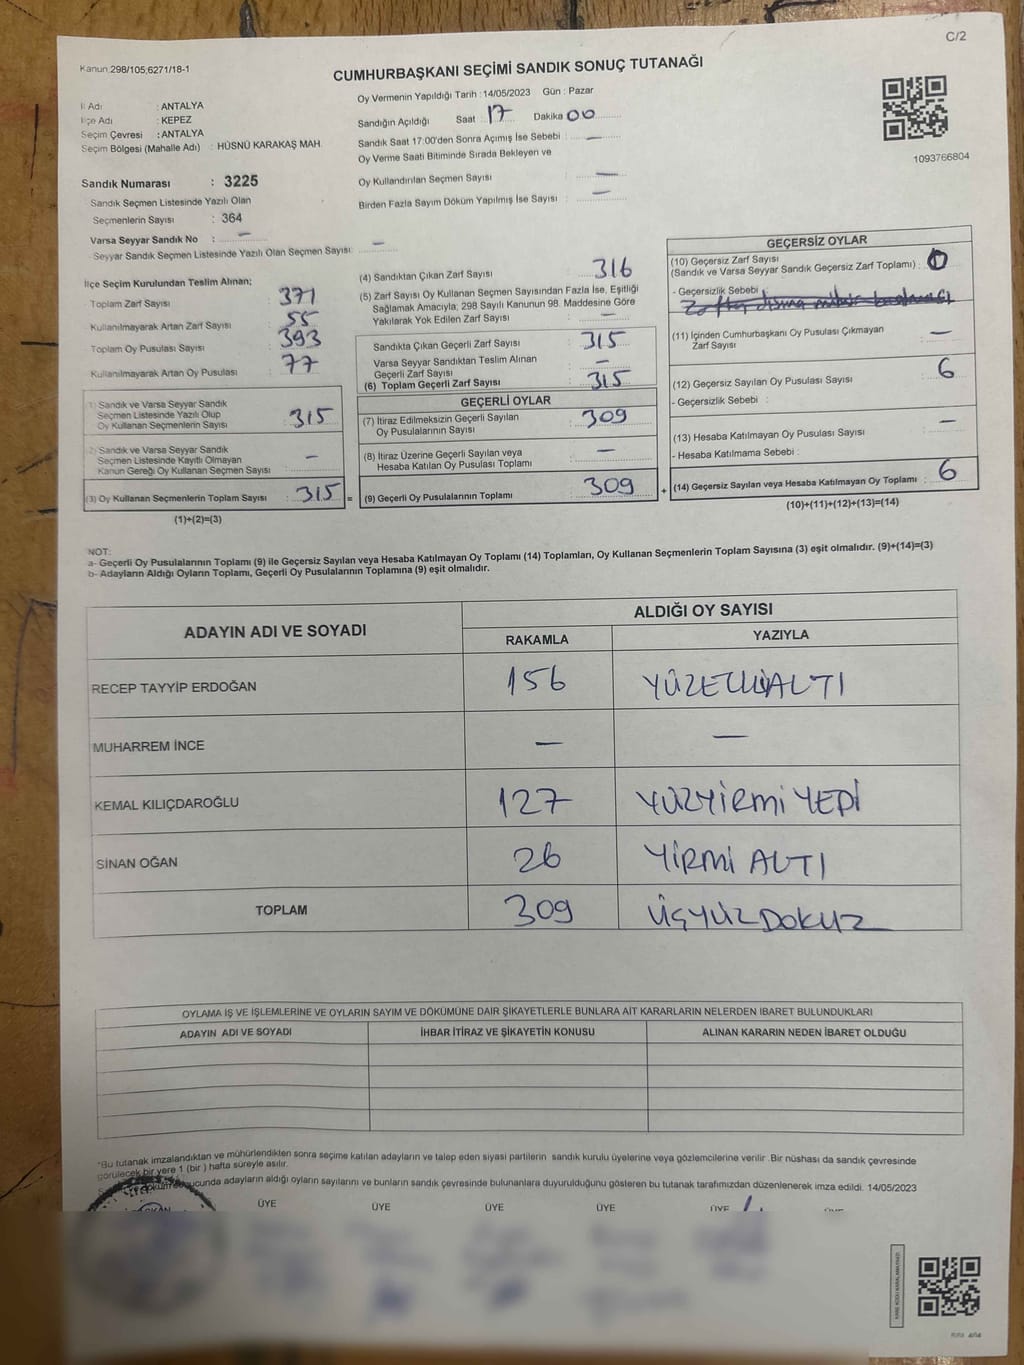 C/2
Kanun 298/105;6271/18-1
CUMHURBAŞKANI SEÇİMİ SANDIK SONUÇ TUTANAĞI
İl Adı : ANTALYA
İlçe Adı : KEPEZ
Seçim Çevresi : ANTALYA
Seçim Bölgesi (Mahalle Adı) : HÜSNÜ KARAKAŞ MAH.
Sandık Numarası : 3225
Sandık Seçmen Listesinde Yazılı Olan
Seçmenlerin Sayısı : 364
Varsa Seyyar Sandık No : —
Seyyar Sandık Seçmen Listesinde Yazılı Olan Seçmen Sayısı: —
Oy Vermenin Yapıldığı Tarih : 14/05/2023 Gün : Pazar
Sandığın Açıldığı Saat : 17 Dakika 00
Sandık Saat 17:00'den Sonra Açımış İse Sebebi : —
Oy Verme Saati Bitiminde Sırada Bekleyen ve
Oy Kullandırılan Seçmen Sayısı : —
Birden Fazla Sayım Döküm Yapılmış İse Sayısı : —
1093766804
İlçe Seçim Kurulundan Teslim Alınan;
Toplam Zarf Sayısı : 371
Kullanılmayarak Artan Zarf Sayısı : 55
Toplam Oy Pusulası Sayısı : 393
Kullanılmayarak Artan Oy Pusulası : 77
1) Sandık ve Varsa Seyyar Sandık
Seçmen Listesinde Yazılı Olup
Oy Kullanan Seçmenlerin Sayısı : 315
2) Sandık ve Varsa Seyyar Sandık
Seçmen Listesinde Kayıtlı Olmayan
Kanun Gereği Oy Kullanan Seçmen Sayısı : —
(3) Oy Kullanan Seçmenlerin Toplam Sayısı : 315 =
(1)+(2)=(3)
(4) Sandıktan Çıkan Zarf Sayısı : 316
(5) Zarf Sayısı Oy Kullanan Seçmen Sayısından Fazla İse, Eşitliği
Sağlamak Amacıyla; 298 Sayılı Kanunun 98. Maddesine Göre
Yakılarak Yok Edilen Zarf Sayısı : —
Sandıkta Çıkan Geçerli Zarf Sayısı : 315
Varsa Seyyar Sandıktan Teslim Alınan
Geçerli Zarf Sayısı : —
(6) Toplam Geçerli Zarf Sayısı : 315
GEÇERLİ OYLAR
(7) İtiraz Edilmeksizin Geçerli Sayılan
Oy Pusulalarının Sayısı : 309
(8) İtiraz Üzerine Geçerli Sayılan veya
Hesaba Katılan Oy Pusulası Toplamı : —
(9) Geçerli Oy Pusulalarının Toplamı : 309 +
GEÇERSİZ OYLAR
(10) Geçersiz Zarf Sayısı
(Sandık ve Varsa Seyyar Sandık Geçersiz Zarf Toplamı) : 0
- Geçersizlik Sebebi :
(11) İçinden Cumhurbaşkanı Oy Pusulası Çıkmayan
Zarf Sayısı : —
(12) Geçersiz Sayılan Oy Pusulası Sayısı : 6
- Geçersizlik Sebebi :
(13) Hesaba Katılmayan Oy Pusulası Sayısı : —
- Hesaba Katılmama Sebebi :
(14) Geçersiz Sayılan veya Hesaba Katılmayan Oy Toplamı : 6
(10)+(11)+(12)+(13)=(14)
NOT:
a- Geçerli Oy Pusulalarının Toplamı (9) ile Geçersiz Sayılan veya Hesaba Katılmayan Oy Toplamı (14) Toplamları, Oy Kullanan Seçmenlerin Toplam Sayısına (3) eşit olmalıdır. (9)+(14)=(3)
b- Adayların Aldığı Oyların Toplamı, Geçerli Oy Pusulalarının Toplamına (9) eşit olmalıdır.
ADAYIN ADI VE SOYADI
ALDIĞI OY SAYISI
RAKAMLA YAZIYLA
RECEP TAYYİP ERDOĞAN 156 YÜZELLİALTI
MUHARREM İNCE — —
KEMAL KILIÇDAROĞLU 127 YÜZYİRMİYEDİ
SİNAN OĞAN 26 YİRMİ ALTI
TOPLAM 309 ÜÇYÜZ DOKUZ
OYLAMA İŞ VE İŞLEMLERİNE VE OYLARIN SAYIM VE DÖKÜMÜNE DAİR ŞİKAYETLERLE BUNLARA AİT KARARLARIN NELERDEN İBARET BULUNDUKLARI
ADAYIN ADI VE SOYADI İHBAR İTİRAZ VE ŞİKAYETİN KONUSU ALINAN KARARIN NEDEN İBARET OLDUĞU
*Bu tutanak imzalandıktan ve mühürlendikten sonra seçime katılan adayların ve talep eden siyasi partilerin sandık kurulu üyelerine veya gözlemcilerine verilir .Bir nüshası da sandık çevresinde
görülecek bir yere 1 (bir ) hafta süreyle asılır.
ucunda adayların aldığı oyların sayılarını ve bunların sandık çevresinde bulunanlara duyurulduğunu gösteren bu tutanak tarafımızdan düzenlenerek imza edildi. 14/05/2023
ÜYE ÜYE ÜYE ÜYE ÜYE